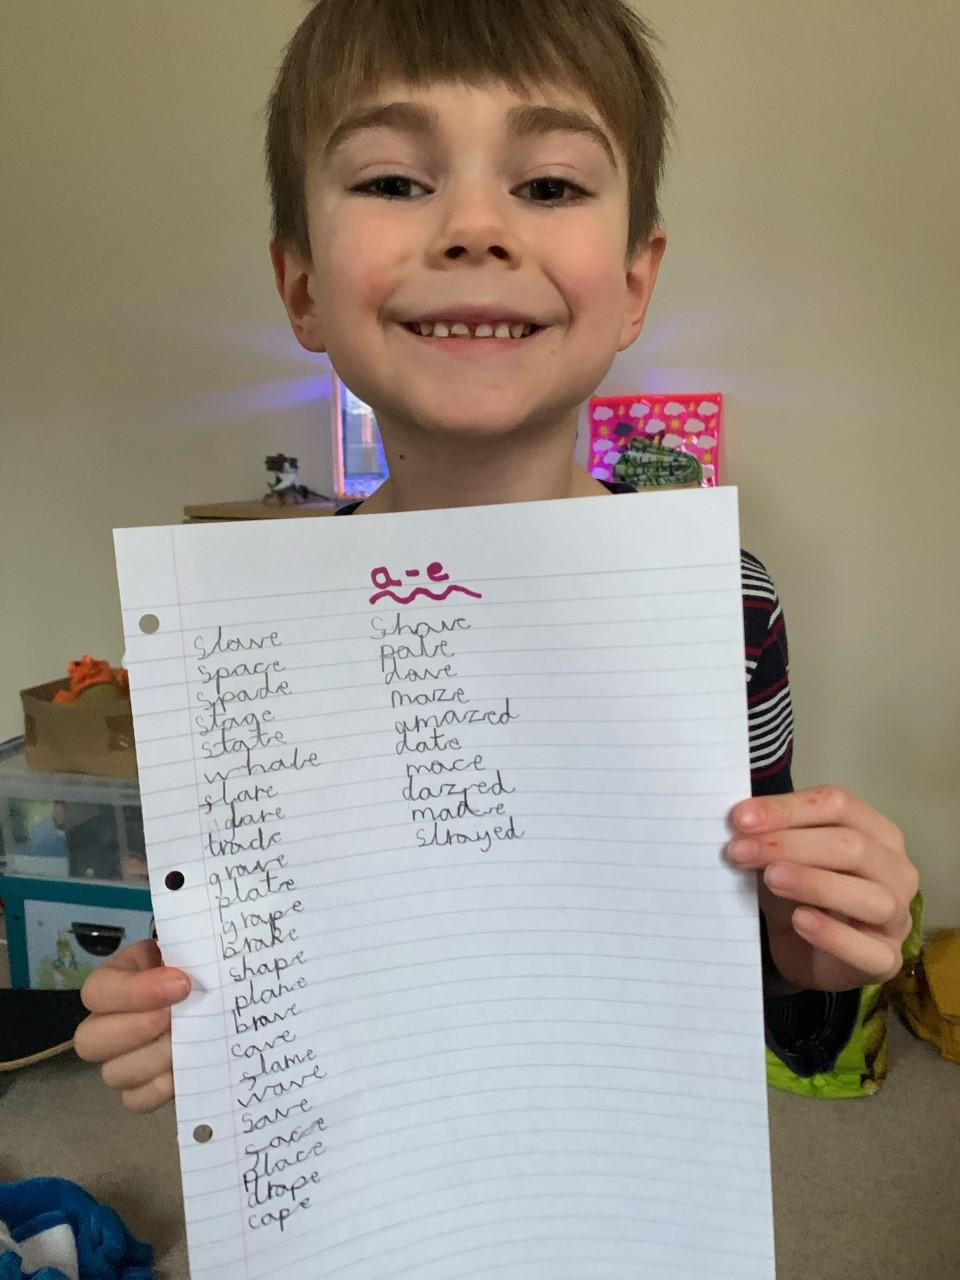 a-e
slave
space
spade
stage
state
whale
stare
dare
trade
grave
plate
grape
brake
shape
plane
brave
cave
wave
save
place
drape
cape
shave
pale
maze
amazed
date
mace
dazred
made
strayed